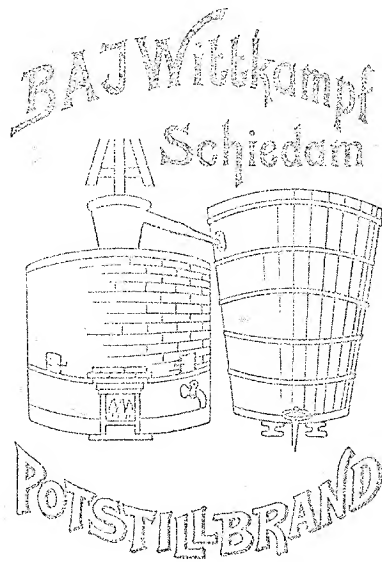 BAJWittkampf
Schiedam
POTSTILL-BRAND